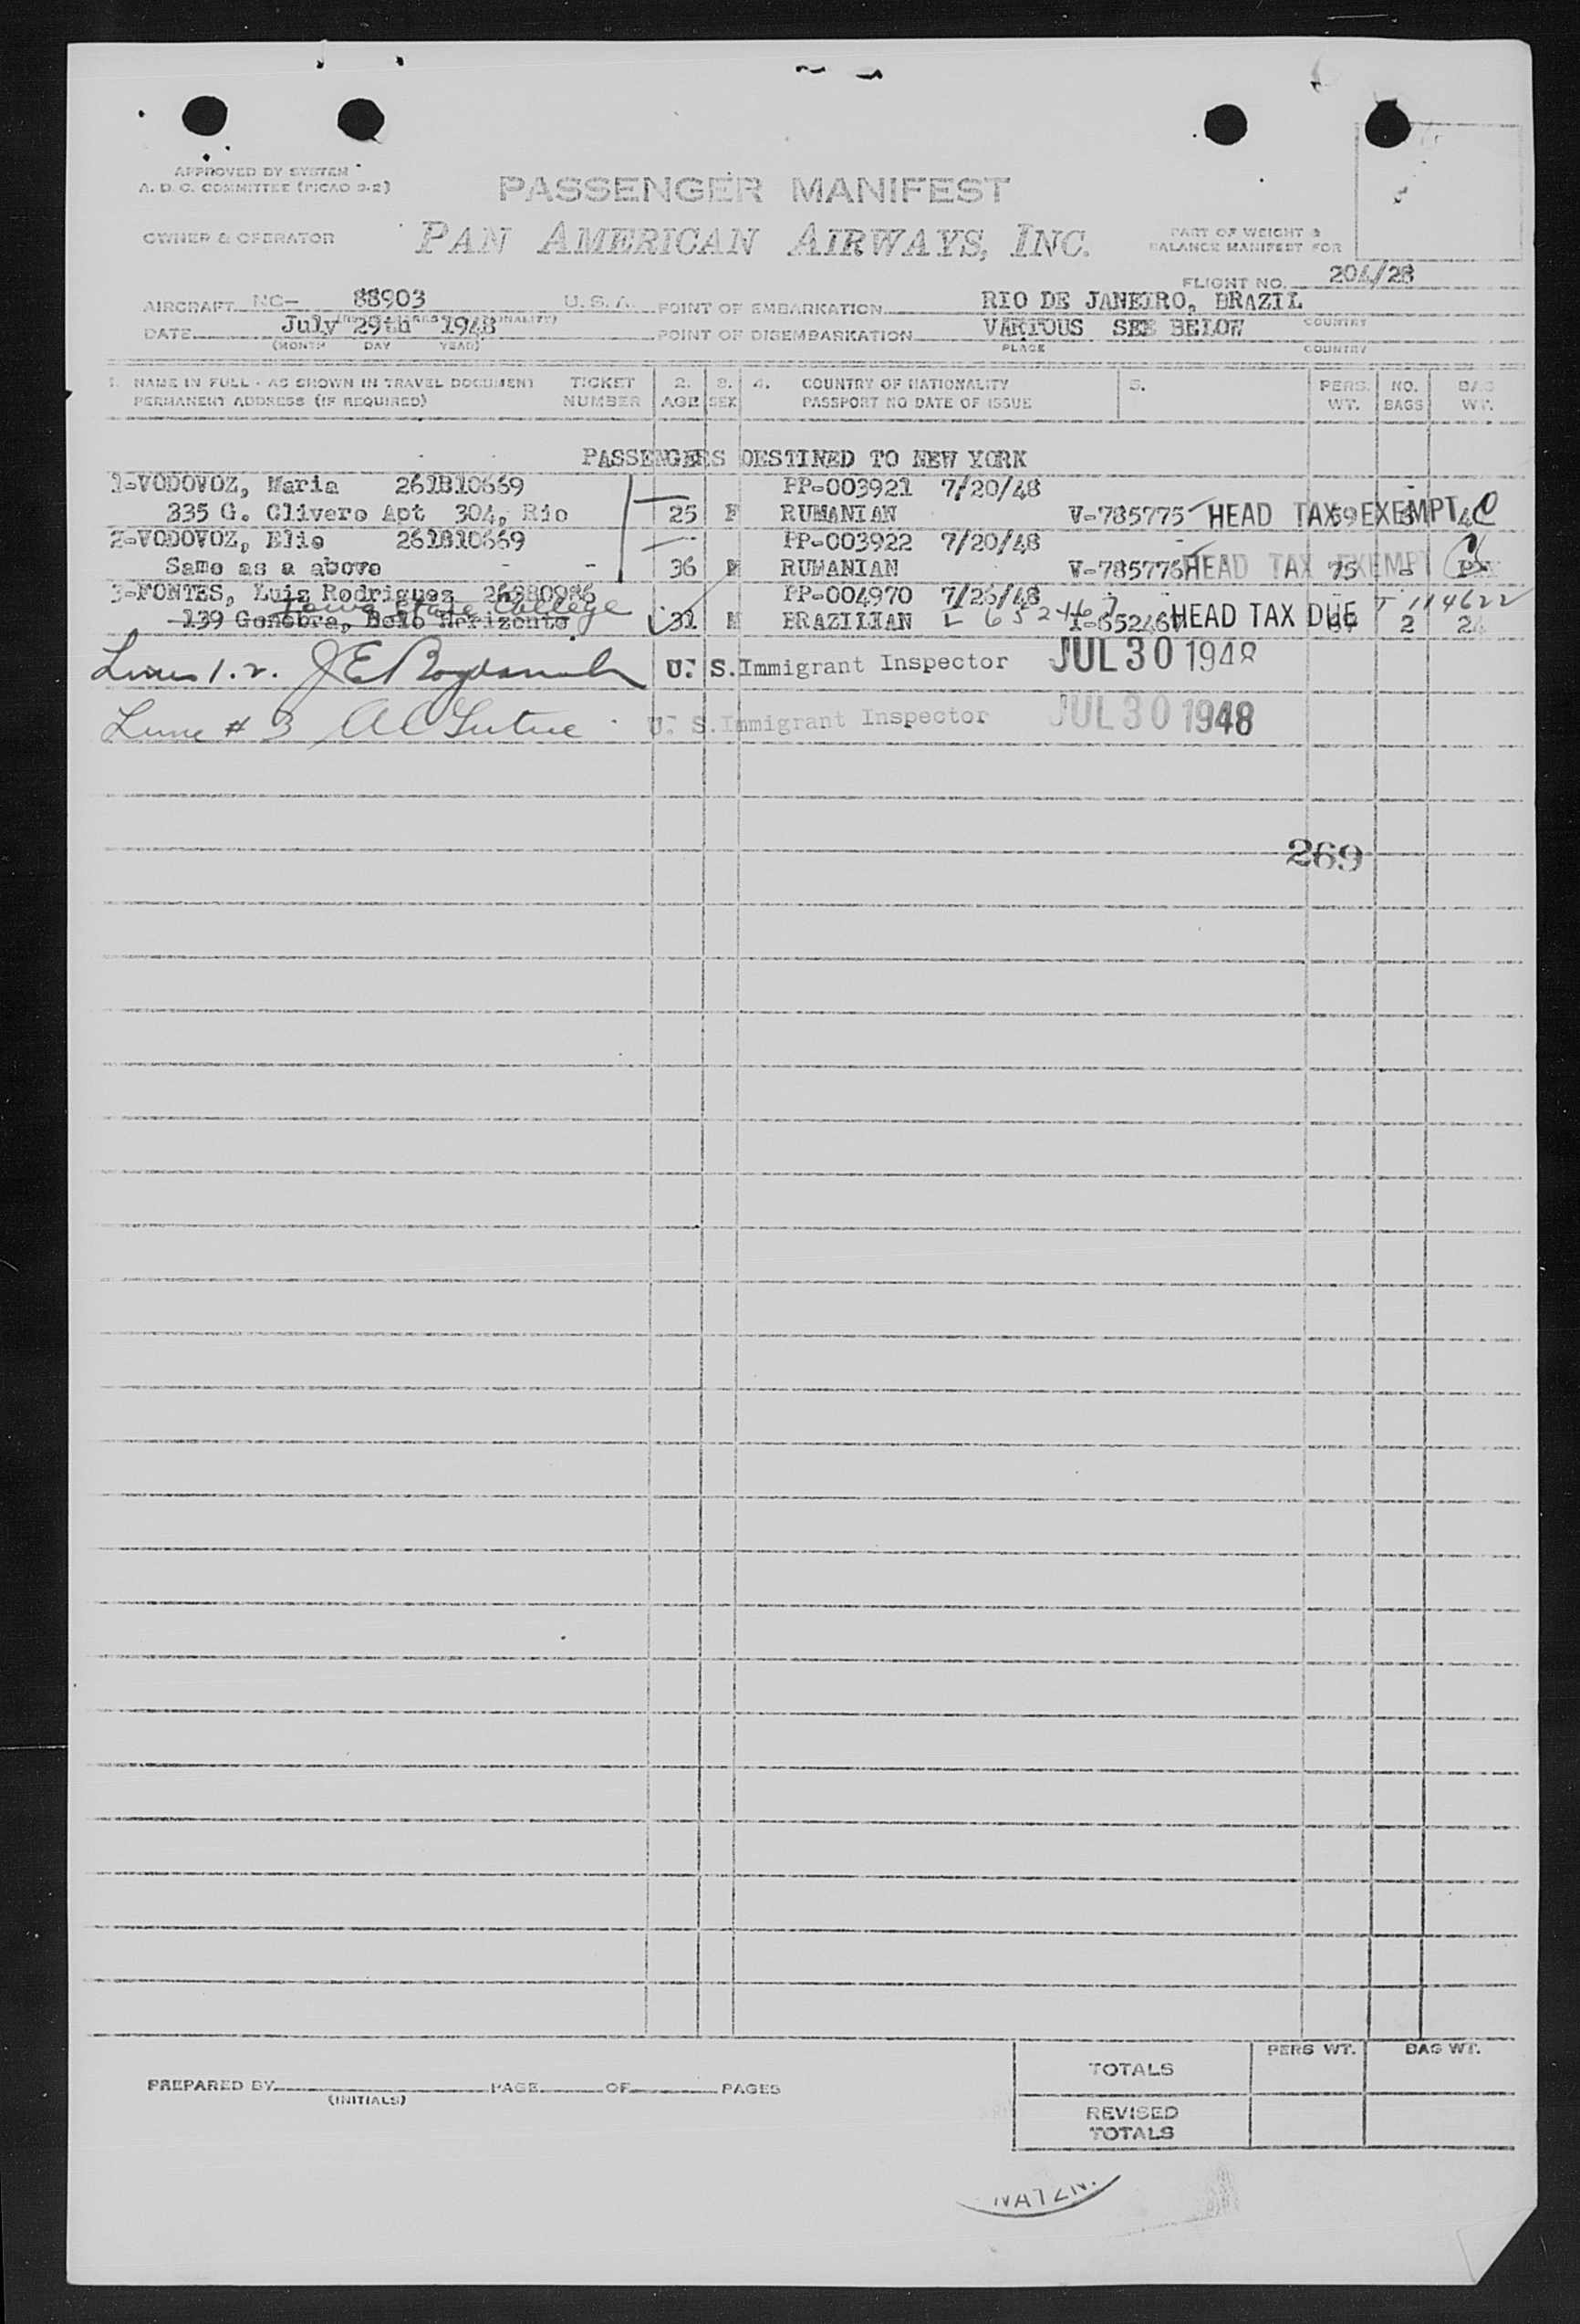 APPROVED BY SYSTEM
A. D. C. COMMITTEE (PICAO 9-2)
PASSENGER MANIFEST
OWNER & OPERATOR
PAN AMERICAN AIRWAYS, INC.
PART OF WEIGHT &
BALANCE MANIFEST FOR
FLIGHT NO. 204/28
AIRCRAFT NC- 88903 U. S. A. POINT OF EMBARKATION RIO DE JANEIRO, BRAZIL
DATE July 29th 1948 POINT OF DISEMBARKATION VARIOUS SEE BELOW COUNTRY
(MONTH DAY YEAR) PLACE COUNTRY
1. NAME IN FULL - AS SHOWN IN TRAVEL DOCUMENT TICKET 2. 3. 4. COUNTRY OF NATIONALITY 5. PERS. NO. BAG
PERMANENT ADDRESS (IF REQUIRED) NUMBER AGE SEX PASSPORT NO DATE OF ISSUE WT. BAGS WT.
PASSENGERS DESTINED TO NEW YORK
1-VODOVOZ, Maria 261B10669 PP-003921 7/20/48
335 G. Olivero Apt 304, Rio 25 F RUMANIAN V-785775 HEAD TAX EXEMPT
2-VODOVOZ, Elie 261B10669 PP-003922 7/20/48
Same as a above 36 M RUMANIAN V-785776 HEAD TAX EXEMPT 75
3-FONTES, Luiz Rodriguez PP-004970 7/26/48
Iowa State College T 114622
139 Belo Horizonto 31 M BRAZILIAN HEAD TAX DUE 2 24
Lines 1.2. U. S. Immigrant Inspector JUL 30 1948
Line # 3 U. S. Immigrant Inspector JUL 30 1948
269
PERS WT. BAG WT.
TOTALS
PREPARED BY PAGE OF PAGES
(INITIALS)
REVISED
TOTALS